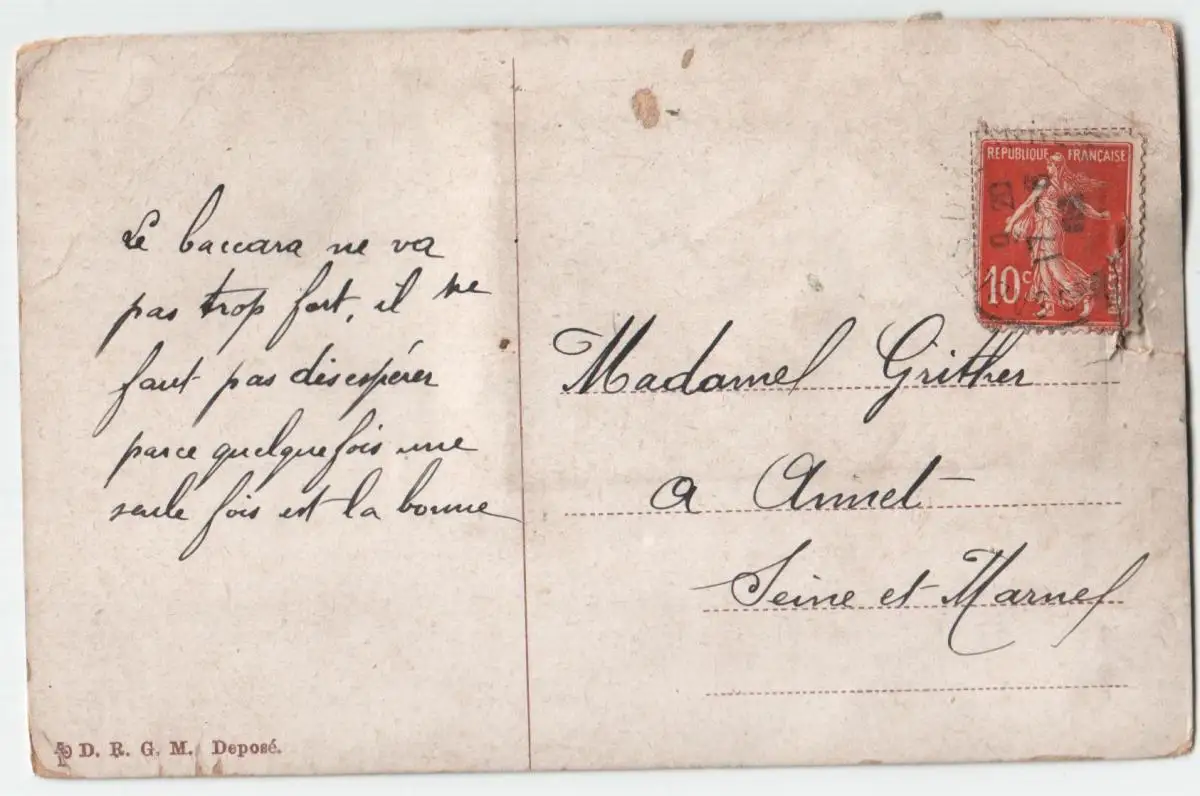 Le baccara ne va
pas trop fort, il ne
faut pas désespérer
parce quelquefois une
seule fois est la bonne
D. R. G. M. Déposé.
RÉPUBLIQUE FRANÇAISE
10 c
POSTES
Madame Grither
a Annet
Seine et Marne